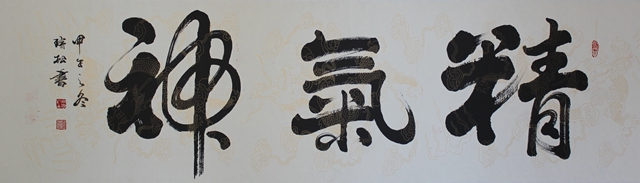 精氣神
甲午之冬
瑞松書